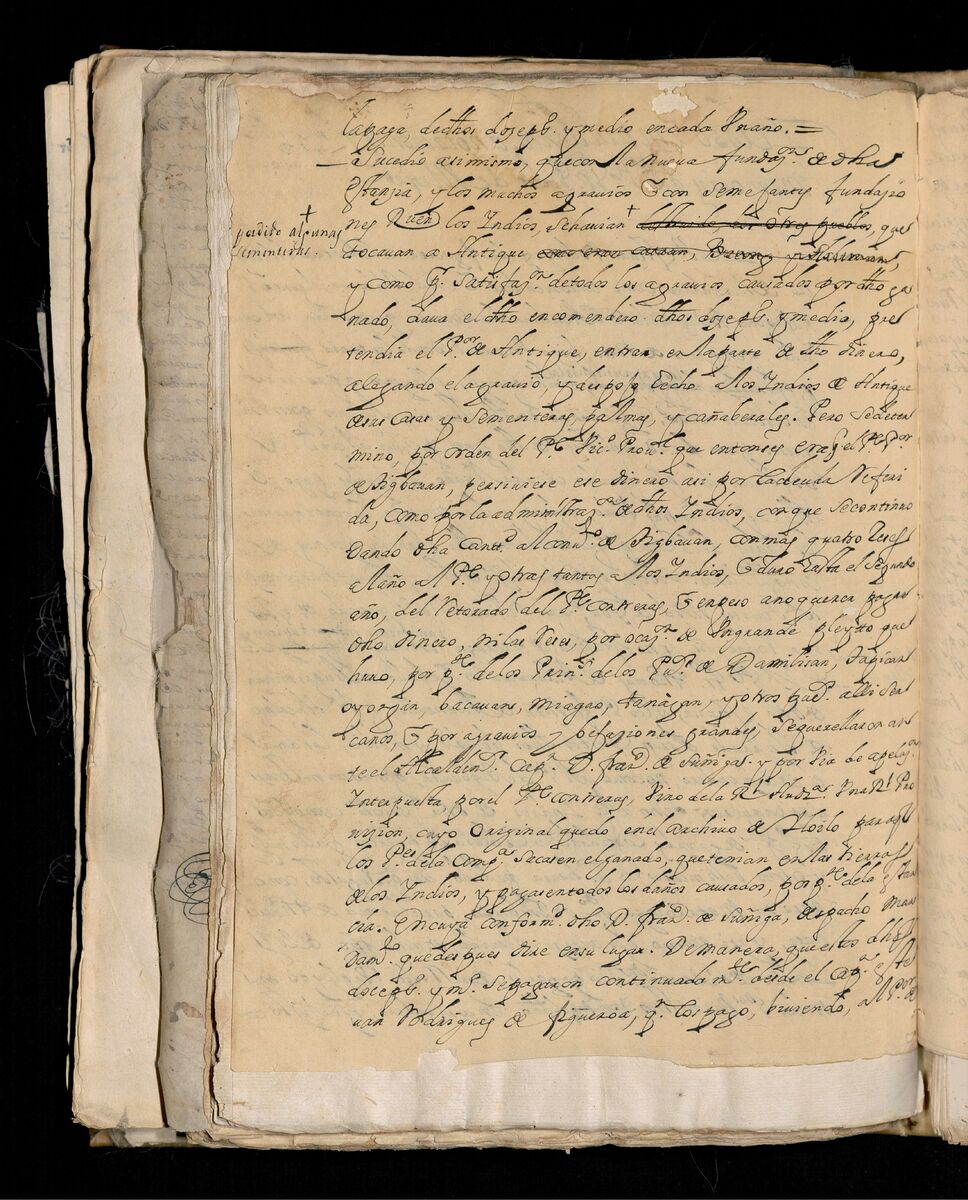 la paga, de dhos doze ps. y medio en cada Vn año. =
Sucedio asimismo, que con la nueua fundazn. de dha
Estanzia, y los muchos agrauios q con semejantes fundazio
nes Reuen los Indios, se hauian † destruido los otros pueblos, que
† perdido algunas
sementeras.
tocauan a Antique como eran y
y como pa. satisfazn. de todos los agrauios, causados por dho ga
nado, daua el dho encomendero dhos doze ps. y medio, pre
tendia el Por. de Antique, entrar en la parte de dho dinero,
alegando el agrauio, y despojo hecho a los Indios de Antique
de sus Casas y Sementeras, palmas, y cañaberales. Pero se deter
mino, por orden del Pe. Vico. Proul. que entonses era, q el Pe. Por
de Sigbauan, persiviese ese dinero asi por la deuda Referi
da, como por la administrazn. de dhos Indios, con que se continuo
dando dha Cantd. al conto. de Sigbauan, con mas quatro Reses
al año al Pe. y otras tantas a los Indios, q duro hasta el segundo
año, del Retorado del Pe. Contreras, q enpeso a no querer pagar
dho dinero, ni las Reses, por ocazn. de Vn grande pleyto que
huuo, por pte. de los Prins. de los Pus. de Damilisan, Tapican
oyorgan, bacauan, miagao, tanagan, y otros pues. alli ser
canos, q por agrauios y befaziones grandes, se querellaron an
te el Alcalde mr. Capn. D. franco. de Suñiga. y por via de apelazn.
Interpuesta, por el Pe. Contreras, Vino de la Rl. Audza. Vna Rl. Pro
visjion, cuyo Original quedo en el archiuo de Yloilo para q
los Pes. de la Compa. sacasen el ganado, que tenian en las tierras
de los Indios, y pagasen todos los daños causados, por pte. de la estan
cia. En cuya conformd. dho D. franco. de Suñiga, despacho Man
damto. que despues dire en su lugar. De manera, que estos dhos
doce ps. y mo. se pagaron continuadamte. desde el Capn. este
uan Rodrigues de figueroa, qn. los pago, biuiendo, al Por. de